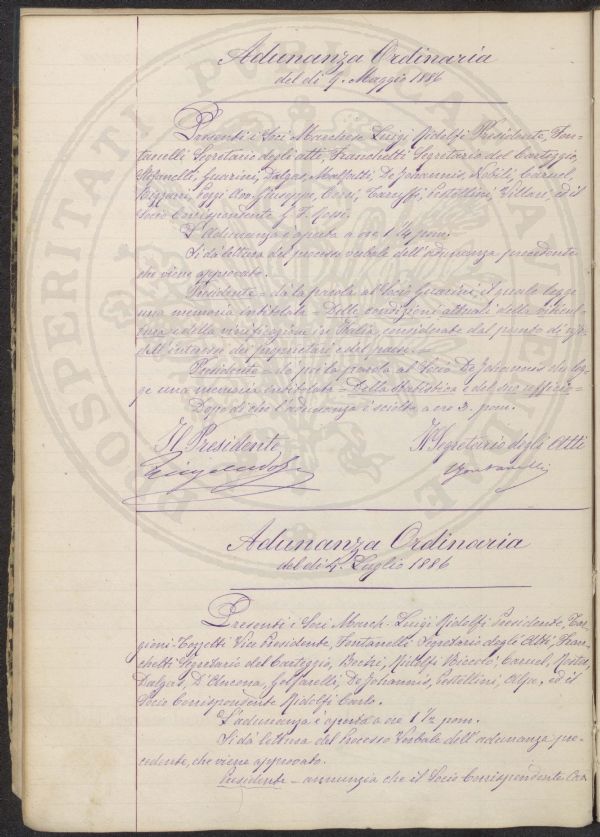 Adunanza Ordinaria
del dì 9. Maggio 1886
Presenti i Soci Marchese Luigi Ridolfi Presidente, Fon-
tanelli Segretario degli atti, Franchetti Segretario del Carteggio,
Stefanelli, Guarini, Dalgas, Malfatti, De Johannis, Nobili, Caruel,
Rizzari, Poggi Avv. Giuseppe, Cesri, Taruffi, Pestellini, Villari, ed il
Socio Corrispondente G. F. Gossi.
L'Adunanza è aperta a ore 1 ¼ pom.
Si dà lettura del processo verbale dell'adunanza precedente
che viene approvato.
Presidente = dà la parola al Socio Guarini, il quale legge
una memoria intitolata = Delle condizioni attuali della viticul-
tura e della vinificazione in Italia, considerate dal punto di vista
dell'interesse dei proprietari e del paese. =
Presidente = dà poi la parola al Socio De Johannis che leg-
ge una memoria intitolata = Della Statistica e del suo ufficio =
Dopo di che l'adunanza è sciolta a ore 3. pom.
Il Presidente Il Segretario degli Atti
Luigi Ridolfi Fontanelli
Adunanza Ordinaria
del dì 4. Luglio 1886
Presenti i Soci March. Luigi Ridolfi Presidente, Tar-
gioni-Tozzetti Vice Presidente, Fontanelli Segretario degli Atti, Fran-
chetti Segretario del Carteggio, Bechi, Ridolfi Niccolò, Caruel,
Dalgas, D'Ancona, Golfarelli, De Johannis, Pestellini, Alpe, ed il
Socio Corrispondente Ridolfi Carlo.
L'adunanza è aperta a ore 1 ½ pom.
Si dà lettura del Processo Verbale dell'adunanza pre-
cedente, che viene approvato.
Presidente = annunzia che il Socio Corrispondente Cav.
PROSPERITATI PVBLICAE AVGENDAE